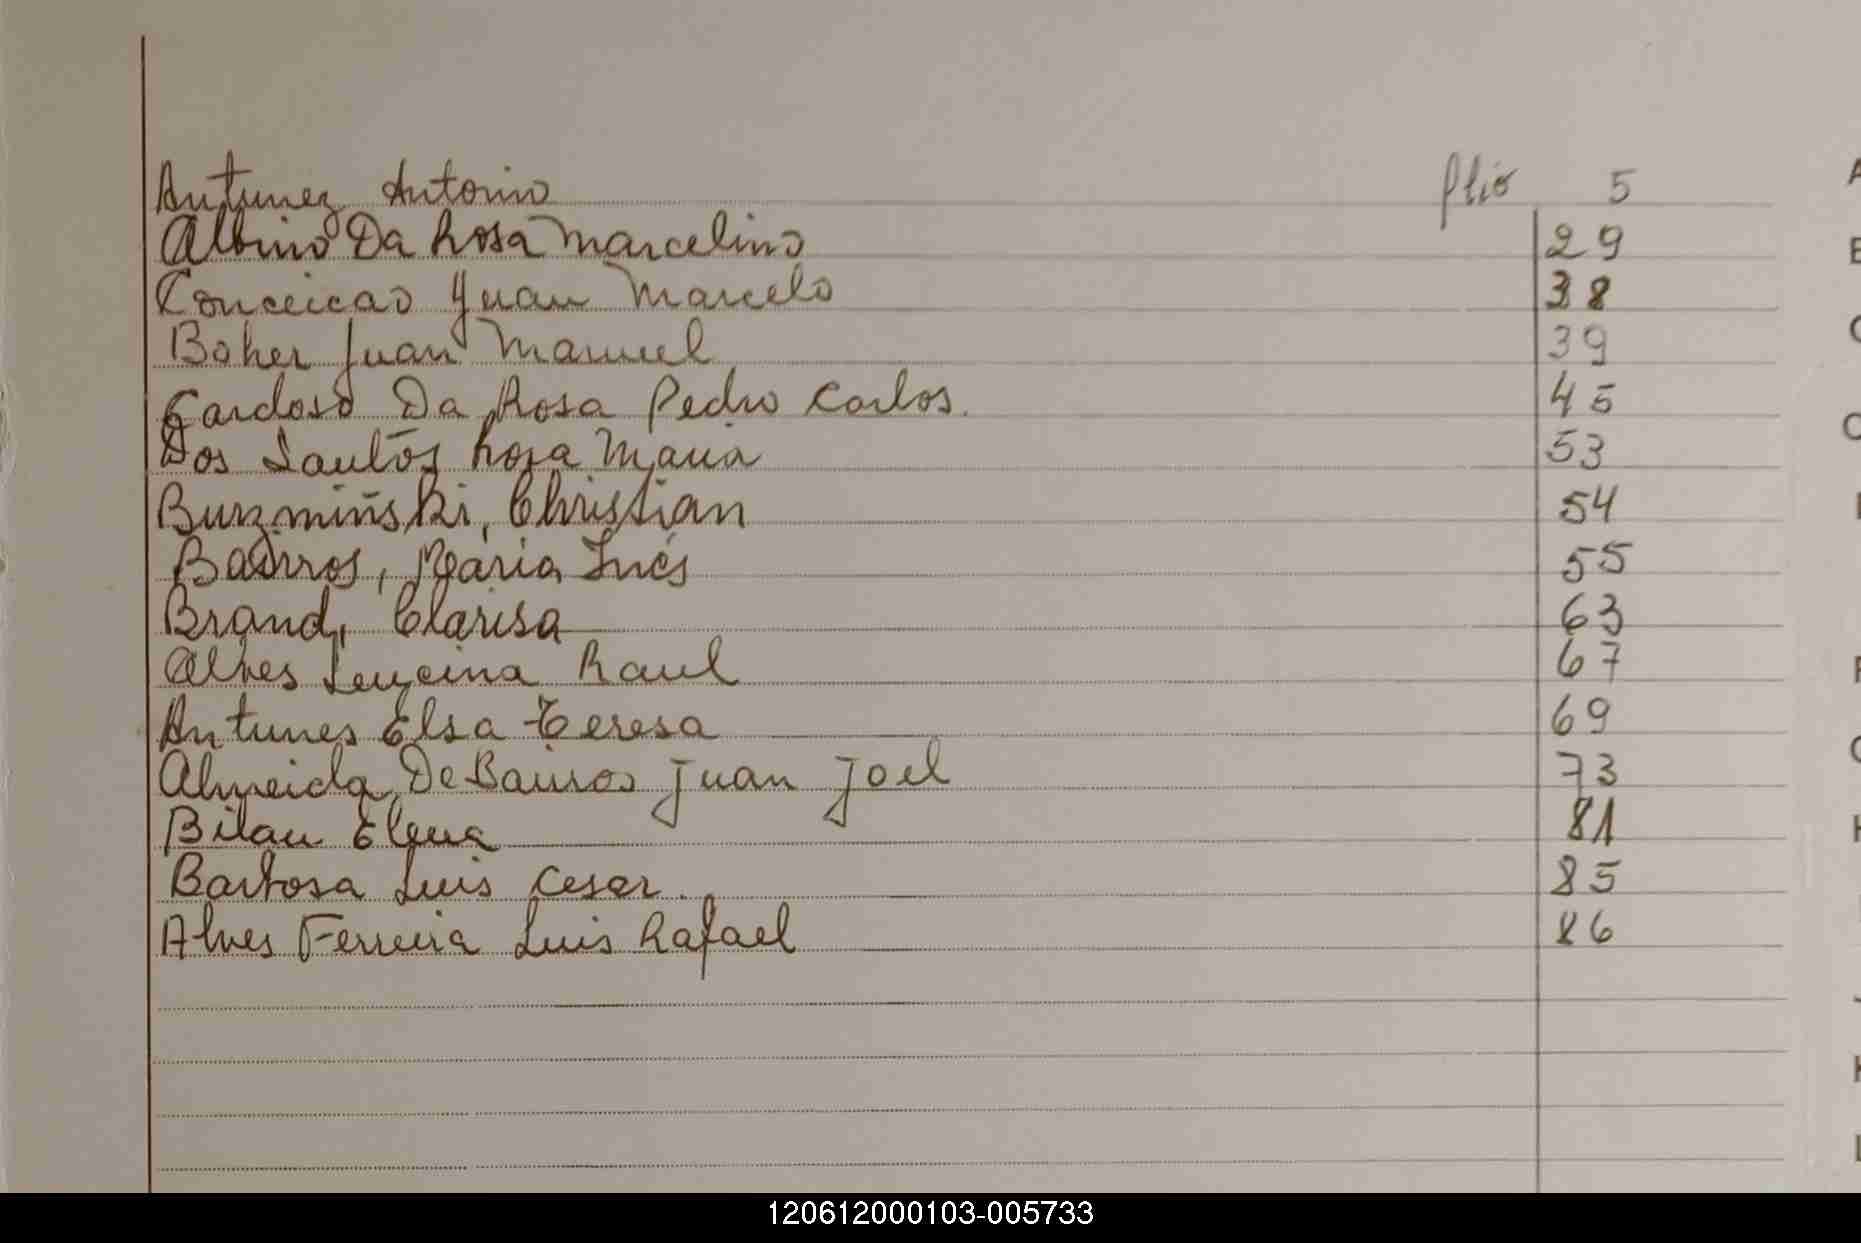 Antunez Antonio folio 5
Albino Da Rosa Marcelino 29
Conceicao Juan Marcelo 38
Boher Juan Manuel 39
Cardoso Da Rosa Pedro Carlos. 45
Dos Santos Rosa Maria 53
Burzmiński, Christian 54
Bairros, Maria Inés 55
Brand, Clarisa 63
Alves Raul 67
Antunes Elsa Teresa 69
Almeida De Bairros Juan Joel 73
Bilau Elena 81
Barbosa Luis Cesar. 85
Alves Ferreira Luis Rafael 86
120612000103-005733